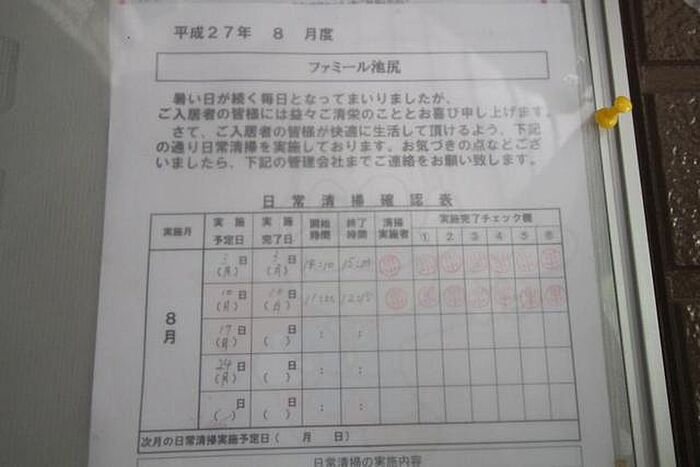 平成27年 8 月度
ファミール池尻
暑い日が続く毎日となってまいりましたが、
ご入居者の皆様には益々ご清栄のこととお喜び申し上げます。
さて、ご入居者の皆様が快適に生活して頂けるよう、下記
の通り日常清掃を実施しております。お気づきの点などござ
いましたら、下記の管理会社までご連絡をお願い致します。
日常清掃確認表
実施月 実施予定日 実施完了日 開始時間 終了時間 清掃実施者 実施完了チェック欄
① ② ③ ④ ⑤ ⑥
8月
3日(月) 3日(月) 14:10
10日(月) 10日(月) 12:45
17日(月) 日( ) : :
24日(月) 日( ) : :
日( ) 日( ) : :
次月の日常清掃実施予定日( 月 日)
日常清掃の実施内容